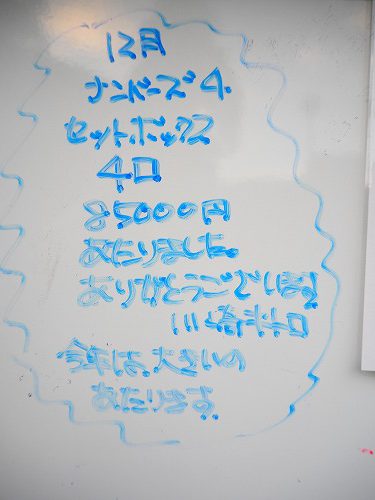 12月
ナンバーズ4.
セットボックス
4口
85000円
あたりました。
ありがとうございます
川崎キロ
今年は、大きいの
あたります。